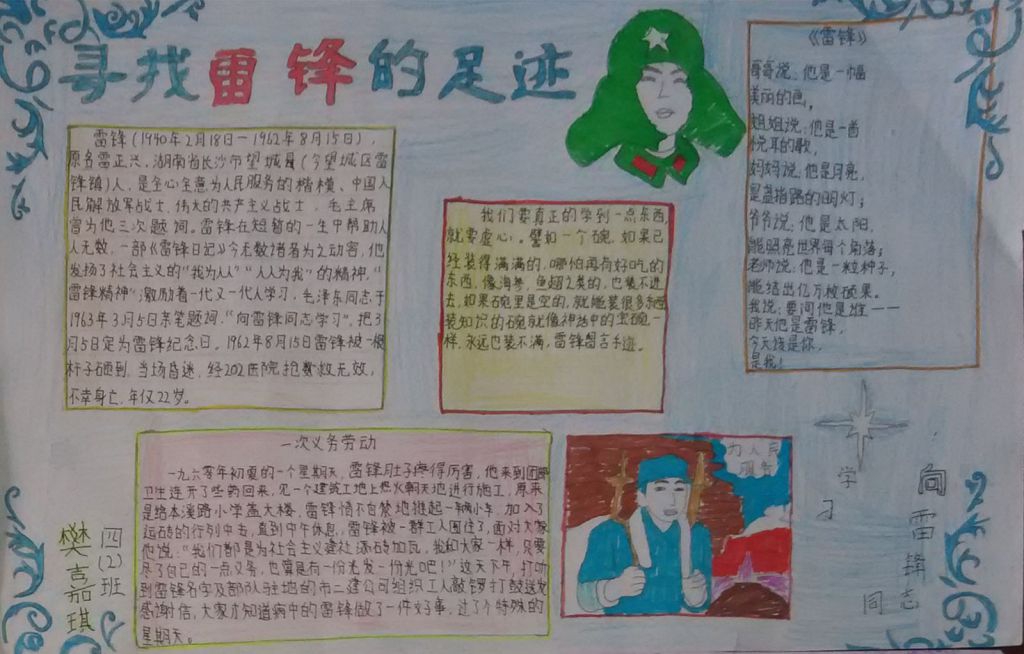 寻找雷锋的足迹
雷锋(1940年2月18日一1962年8月15日),
原名雷正兴,湖南省长沙市望城县(今望城区雷
锋镇)人,是全心全意为人民服务的楷模、中国人
民解放军战士、伟大的共产主义战士,毛主席
曾为他三次题词。雷锋在短暂的一生中帮助人
人无数,一部《雷锋日记》令无数读者为之动容,他
发扬了社会主义的“我为人”“人人为我”的精神,“
雷锋精神”激励着一代又一代人学习,毛泽东同志于
1963年3月5日亲笔题词,“向雷锋同志学习”,把3
月5日定为雷锋纪念日。1962年8月15日雷锋被一根
杆子砸到,当场昏迷,经202医院抢救无效,
不幸身亡,年仅22岁。
我们要真正的学到一点东西
就要虚心。譬如一个碗,如果已
经装得满满的,哪怕再有好吃的
东西,像海参、鱼翅之类的,也装不进
去,如果碗里是空的,就能装很多东西
装知识的碗就像神话中的宝碗一
样,永远也装不满,雷锋留言手迹。
《雷锋》
哥哥说:他是一幅
美丽的画,
姐姐说:他是一首
悦耳的歌,
妈妈说:他是月亮,
是盏指路的明灯;
爷爷说:他是太阳,
能照亮世界每个角落;
老师说:他是一粒种子,
能结出亿万被硕果。
我说:要问他是谁——
昨天他是雷锋,
今天该是你,
是我!
一次义务劳动
一九六零年初夏的一个星期天,雷锋肚子疼得厉害,他来到团部
卫生连开了些药回来,见一个建筑工地上热火朝天地进行施工,原来
是给本溪路小学盖大楼,雷锋情不自禁地推起一辆小车,加入了
运砖的行列中去,直到中午休息,雷锋被一群工人围住了,面对大家
他说:“我们都是为社会主义建设添砖加瓦,我和大家一样,只要
尽了自己的一点义务,也算是有一份光发一份光吧!”这天下午,打听
到雷锋名字及部队驻地的市二建公司组织工人敲锣打鼓送来
感谢信,大家才知道病中的雷锋做了一件好事,过了个特殊的
星期天。
为人民
服务
向雷锋同志
学习
四(2)班
樊嘉琪